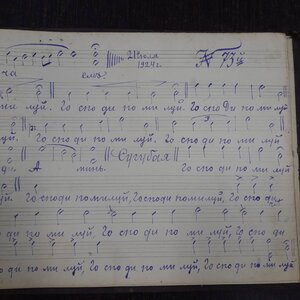 21 Июля
1924 г. № 73й
луй. Го спо ди по ми луй. Го спо ди по ми луй
луй. Го спо ди по ми луй. Го спо ди по ми
ди. А минь. Сугубая Го спо ди по ми луй
Господи помилуй, Господи помилуй, Го спо ди
ми луй, Го спо ди по ми луй, Го спо ди
спо ди по ми луй, Го спо ди по ми луй, Го спо ди по ми луй